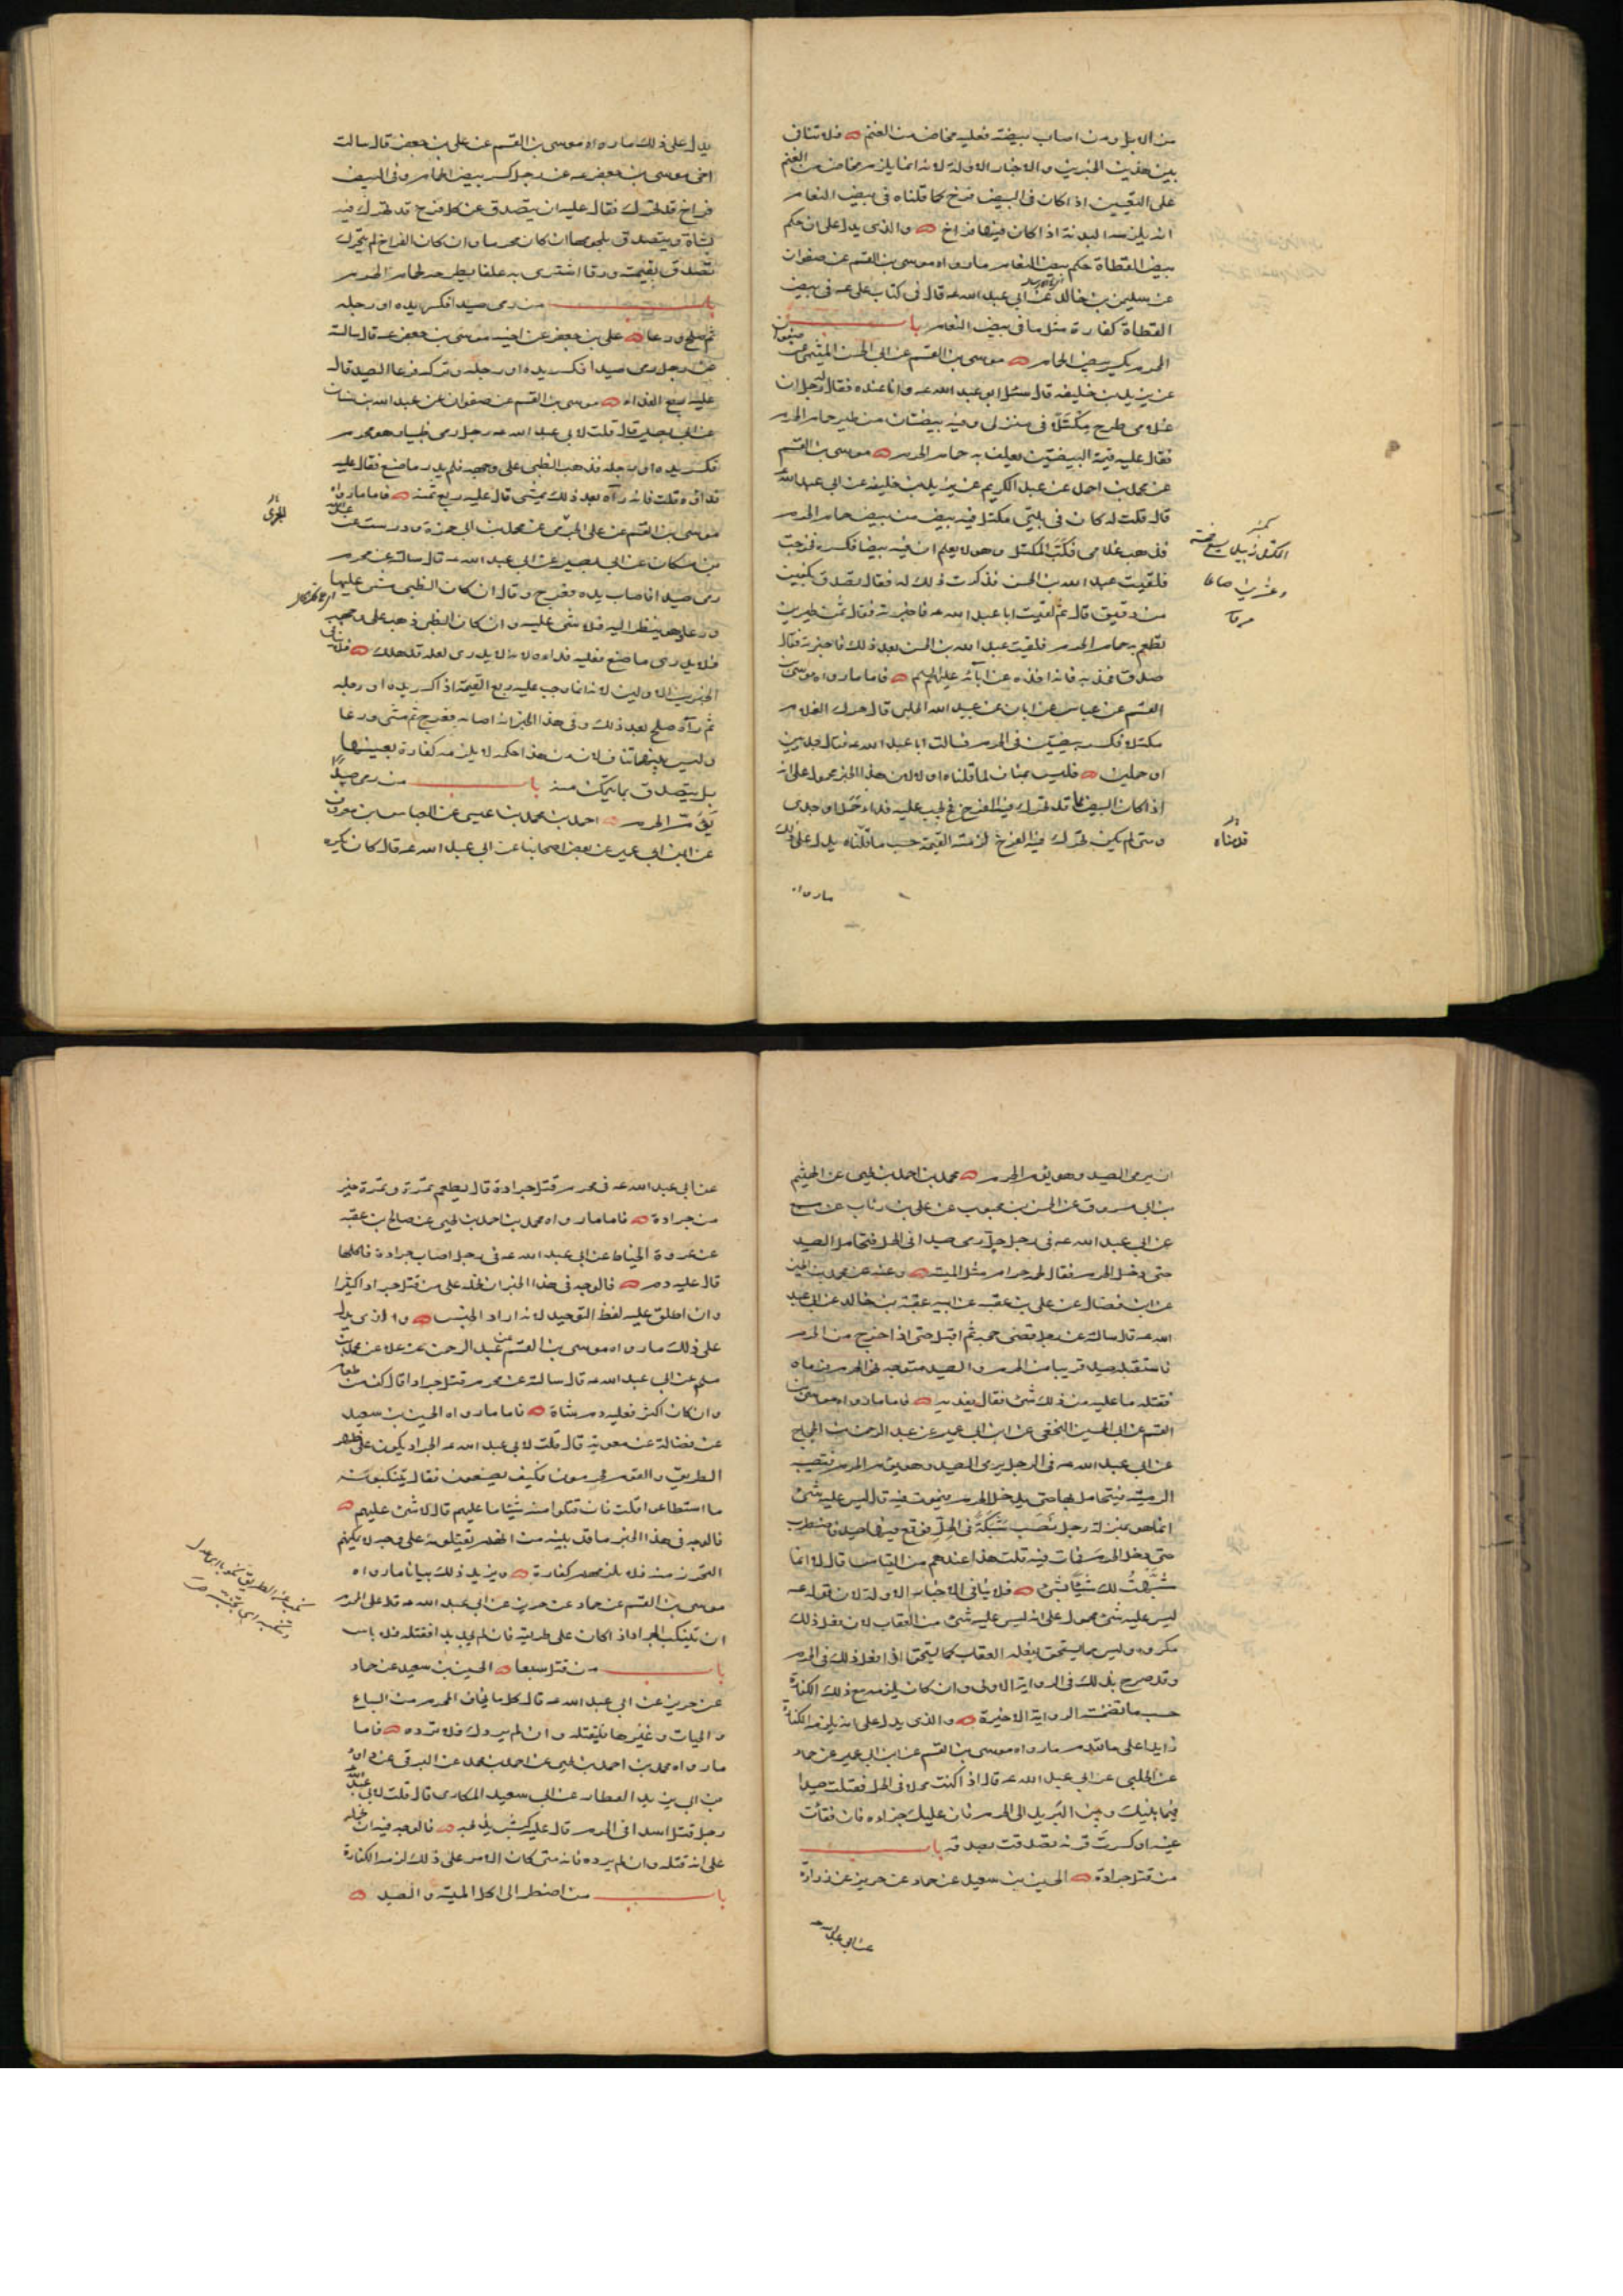 من الابل ومن اصاب بيضة فعليه مخاض من الغنم فلا تنافي
بين هذين الخبرين والاخبار الاولة لانه انما يلزمه مخاض من الغنم
على التعيين اذا كان في البيض فرخ كما قلناه في بيض النعام
انه يلزمه البدنة اذا كان فيها فراخ والذي يدل على ان حكم
بيض القطاة حكم بيض النعام ما رواه موسى بن القسم عن صفوان
عن سليمن بن خالد عن ابي عبد الله عه قال في كتاب علي عه في بيض
القطاة كفارة مثل ما في بيض النعام باب
المحرم يكسر بيض الحمام موسى بن القسم عن ابي الحسن الميثمي عن صفوان
عن يزيد بن خليفه قال سئل ابو عبد الله عه وانا عنده فقال له رجل ان
غلامي طرح مكتلا في منزلي وفيه بيضتان من طير حمام الحرم
فقال عليه قيمة البيضتين يعلف به حمام الحرم موسى بن القسم
عن محمد بن احمد عن عبد الكريم عن يزيد بن خليفه عن ابي عبد الله عه
قال قلت له كان في بيتي مكتل فيه بيض من بيض حمام الحرم
فذهب غلامي فكب المكتل وهو لا يعلم ان فيه بيضا فكسره فخرجت
فلقيت عبد الله بن الحسن فذكرت ذلك له فقال تصدق بكفين
من دقيق قال ثم لقيت ابا عبد الله عه فاخبرته فقال ثمن طيرين
تطعم به حمام الحرم فلقيت عبد الله بن الحسن بعد ذلك فاخبرته فقال
صدق فخذ به فانه اخذه عن آبائه عليهم السلم فاما ما رواه موسى بن
القسم عن عباس عن ابان عن عبيد الله الحلبي قال حرك الغلام
مكتلا فكسر بيضتين في الحرم فسالت ابا عبد الله عه فقال جديين
او حملين فليس بمناف لما قلناه اولا لان هذا الخبر محمول على انه
اذا كان البيض مما قد تحرك فيه الفرخ فح يجب عليه فداء حمل او جدي
ومتى لم يكن تحرك فيه الفرخ لزمته القيمة حسب ما قلناه يدل على ذلك
ما رواه
المكتل زبيل يسع خمسة
وعشرين صاعا
قدمناه
يدل على ذلك ما رواه موسى بن القسم عن علي بن جعفر قال سالت
اخي موسى بن جعفر عه عن رجل كسر بيض الحمام وفي البيض
فراخ قد تحرك فقال عليه ان يتصدق عن كل فرخ قد تحرك فيه
بشاة ويتصدق بلحومها ان كان محرما وان كان الفراخ لم يتحرك
تصدق بقيمته ورقا اشترى به علفا يطرحه لحمام الحرم
باب من رمى صيدا فكسر يده او رجله
ثم صلح ورعا علي بن جعفر عن اخيه موسى بن جعفر عه قال سالته
عن رجل رمى صيدا فكسر يده او رجله وتركه فرعا الصيد قال
عليه ربع الفداء موسى بن القسم عن صفوان عن عبد الله بن سنان
عن ابي بصير قال قلت لابي عبد الله عه رجل رمى ظبيا وهو محرم
فكسر يده او رجله فذهب الظبي على وجهه فلم يدر ما صنع فقال عليه
فداؤه قلت فانه رآه بعد ذلك يمشي قال عليه ربع ثمنه فاما ما رواه
موسى بن القسم عن علي الجرمي عن محمد بن ابي حمزة ودرست عن عبد الله
بن مسكان عن ابي بصير عن ابي عبد الله عه قال سالته عن محرم
رمى صيدا فاصاب يده فعرج وقال ان كان الظبي مشى عليها
ورعا وهو ينظر اليه فلا شئ عليه وان كان الظبي ذهب على وجهه
فلا يدري ما صنع فعليه فداءه لانه لا يدري لعله قد هلك فلا ينافي
الخبرين الاولين لانه انما وجب عليه ربع القيمة اذا كسر يده او رجله
ثم رآه صلح بعد ذلك وفي هذا الخبر انه اصابه فعرج ثم مشى ورعا
وليس بينهما تناف لان من هذا حكمه لا يلزمه كفارة بعينها
بل يتصدق بما يتمكن منه باب من رمى صيدا
يؤم الحرم احمد بن محمد بن عيسى عن العباس بن معروف
عن ابن ابي عمير عن بعض اصحابنا عن ابي عبد الله عه قال كان يكره
الجرمي
ان يرمى الصيد وهو يؤم الحرم محمد بن احمد بن يحيى عن الهيثم
بن ابي مسروق عن الحسن بن محبوب عن علي بن رئاب عن مسمع
عن ابي عبد الله عه في رجل حل رمى صيدا في الحل فتحامل الصيد
حتى دخل الحرم فقال لحمه حرام مثل الميتة وعنه عن محمد بن الحسين
عن ابن فضال عن علي بن عقبه عن ابيه عقبة بن خالد عن ابي عبد
الله عه قال سالته عن رجل قضى حجه ثم اقبل حتى اذا خرج من الحرم
فاستقبله صيد قريبا من الحرم والصيد متوجه نحو الحرم فرماه
فقتله ما عليه من ذلك شئ فقال يفديه فاما ما رواه موسى بن
القسم عن ابي الحسين النخعي عن ابن ابي عمير عن عبد الرحمن بن الحجاج
عن ابي عبد الله عه في الرجل يرمى الصيد وهو يؤم الحرم فتصيبه
الرمية فيتحامل بها حتى يدخل الحرم فيموت فيه قال ليس عليه شئ
انما هو بمنزلة رجل نصب شبكة في الحل فوقع فيها صيد فاضطرب
حتى دخل الحرم فمات فيه قلت هذا عندهم من القياس قال لا انما
شبهت لك شيئا بشئ فلا ينافي الاخبار الاولة لان قوله عه
ليس عليه شئ محمول على انه ليس عليه شئ من العقاب لان فعل ذلك
مكروه وليس مما يستحق بفعله العقاب كما يستحق اذا فعل ذلك في الحرم
وقد صرح بذلك في الرواية الاولى وان كان يلزمه مع ذلك الكفارة
حسب ما تضمنته الرواية الاخيرة والذي يدل على انه يلزمه الكفارة
زايدا على ما تقدم ما رواه موسى بن القسم عن ابن ابي عمير عن حماد
عن الحلبي عن ابي عبد الله عه قال اذا كنت محلا في الحل فقتلت صيدا
فيما بينك وبين البريد الى الحرم فان عليك جزاءه فان فقأت
عينه او كسرت قرنه تصدقت بصدقه باب
من قتل جرادة الحسين بن سعيد عن حماد عن حريز عن زرارة
عن ابي عبد الله
عن ابي عبد الله عه في محرم قتل جرادة قال يطعم تمرة وتمرة خير
من جرادة فاما ما رواه محمد بن احمد بن يحيى عن صالح بن عقبه
عن عروة الحناط عن ابي عبد الله عه في رجل اصاب جرادة فاكلها
قال عليه دم فالوجه في هذا الخبر ان نحمله على من قتل جرادا كثيرا
وان اطلق عليه لفظ التوحيد لانه اراد الجنس والذي يدل
على ذلك ما رواه موسى بن القسم عن عبد الرحمن عن علاء عن محمد بن
مسلم عن ابي عبد الله عه قال سالته عن محرم قتل جرادا قال كف من طعام
وان كان اكثر فعليه دم شاة فاما ما رواه الحسين بن سعيد
عن فضالة عن معويه قال قلت لابي عبد الله عه الجراد يكون على ظهر
الطريق والقوم محرمون فكيف يصنعون فقال يتنكبونه
ما استطاعوا قلت فان قتلوا منه شيئا ما عليهم قال لا شئ عليهم
فالوجه في هذا الخبر ما قد بينه من انهم يقتلونه على وجه لا يمكنهم
التحرز منه فلا يلزمهم كفارة ويزيد ذلك بيانا ما رواه
موسى بن القسم عن حماد عن حريز عن ابي عبد الله عه قال على المحرم
ان يتنكب الجراد اذا كان على طريقه فان لم يجد بدا فقتله فلا باس
باب من قتل سبعا الحسين بن سعيد عن حماد
عن حريز عن ابي عبد الله عه قال كل ما يخاف المحرم من السباع
والحيات وغيرها فليقتله وان لم يردك فلا ترده فاما
ما رواه محمد بن احمد بن يحيى عن احمد بن محمد عن البرقي عن داود
بن ابي يزيد العطار عن ابي سعيد المكاري قال قلت لابي عبد الله
رجل قتل اسدا في الحرم قال عليه كبش يذبحه فالوجه فيه ان نحمله
على انه قتله وان لم يرده فانه متى كان الامر على ذلك لزمه الكفارة
باب من اضطر الى اكل الميتة والصيد